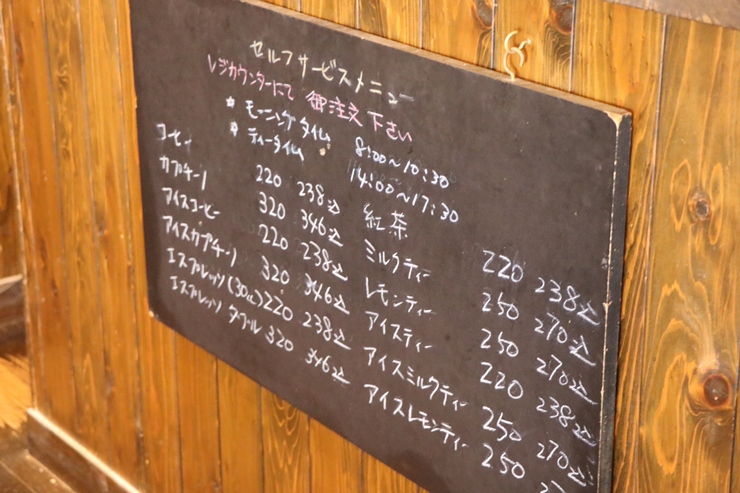 セルフサービスメニュー
レジカウンターにて 御注文下さい
* モーニングタイム 8:00～10:30
* ティータイム 14:00～17:30
コーヒー 220 238込
カプチーノ 320 346込
アイスコーヒー 220 238込
アイスカプチーノ 320 346込
エスプレッソ(30cc) 220 238込
エスプレッソ ダブル 320 346込
紅茶 220 238込
ミルクティー 250 270込
レモンティー 250 270込
アイスティー 220 238込
アイスミルクティー 250 270込
アイスレモンティー 250